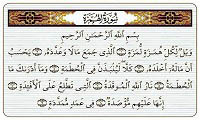 سُورَةُ الهُمَزَةِ
بِسْمِ ٱللَّهِ ٱلرَّحْمَٰنِ ٱلرَّحِيمِ
وَيْلٌ لِّكُلِّ هُمَزَةٍ لُّمَزَةٍ ۝ ٱلَّذِى جَمَعَ مَالًا وَعَدَّدَهُۥ ۝ يَحْسَبُ
أَنَّ مَالَهُۥٓ أَخْلَدَهُۥ ۝ كَلَّا لَيُنۢبَذَنَّ فِى ٱلْحُطَمَةِ ۝ وَمَآ أَدْرَىٰكَ مَا
ٱلْحُطَمَةُ ۝ نَارُ ٱللَّهِ ٱلْمُوقَدَةُ ۝ ٱلَّتِى تَطَّلِعُ عَلَى ٱلْأَفْـِٔدَةِ ۝
إِنَّهَا عَلَيْهِم مُّؤْصَدَةٌ ۝ فِى عَمَدٍ مُّمَدَّدَةٍۭ ۝